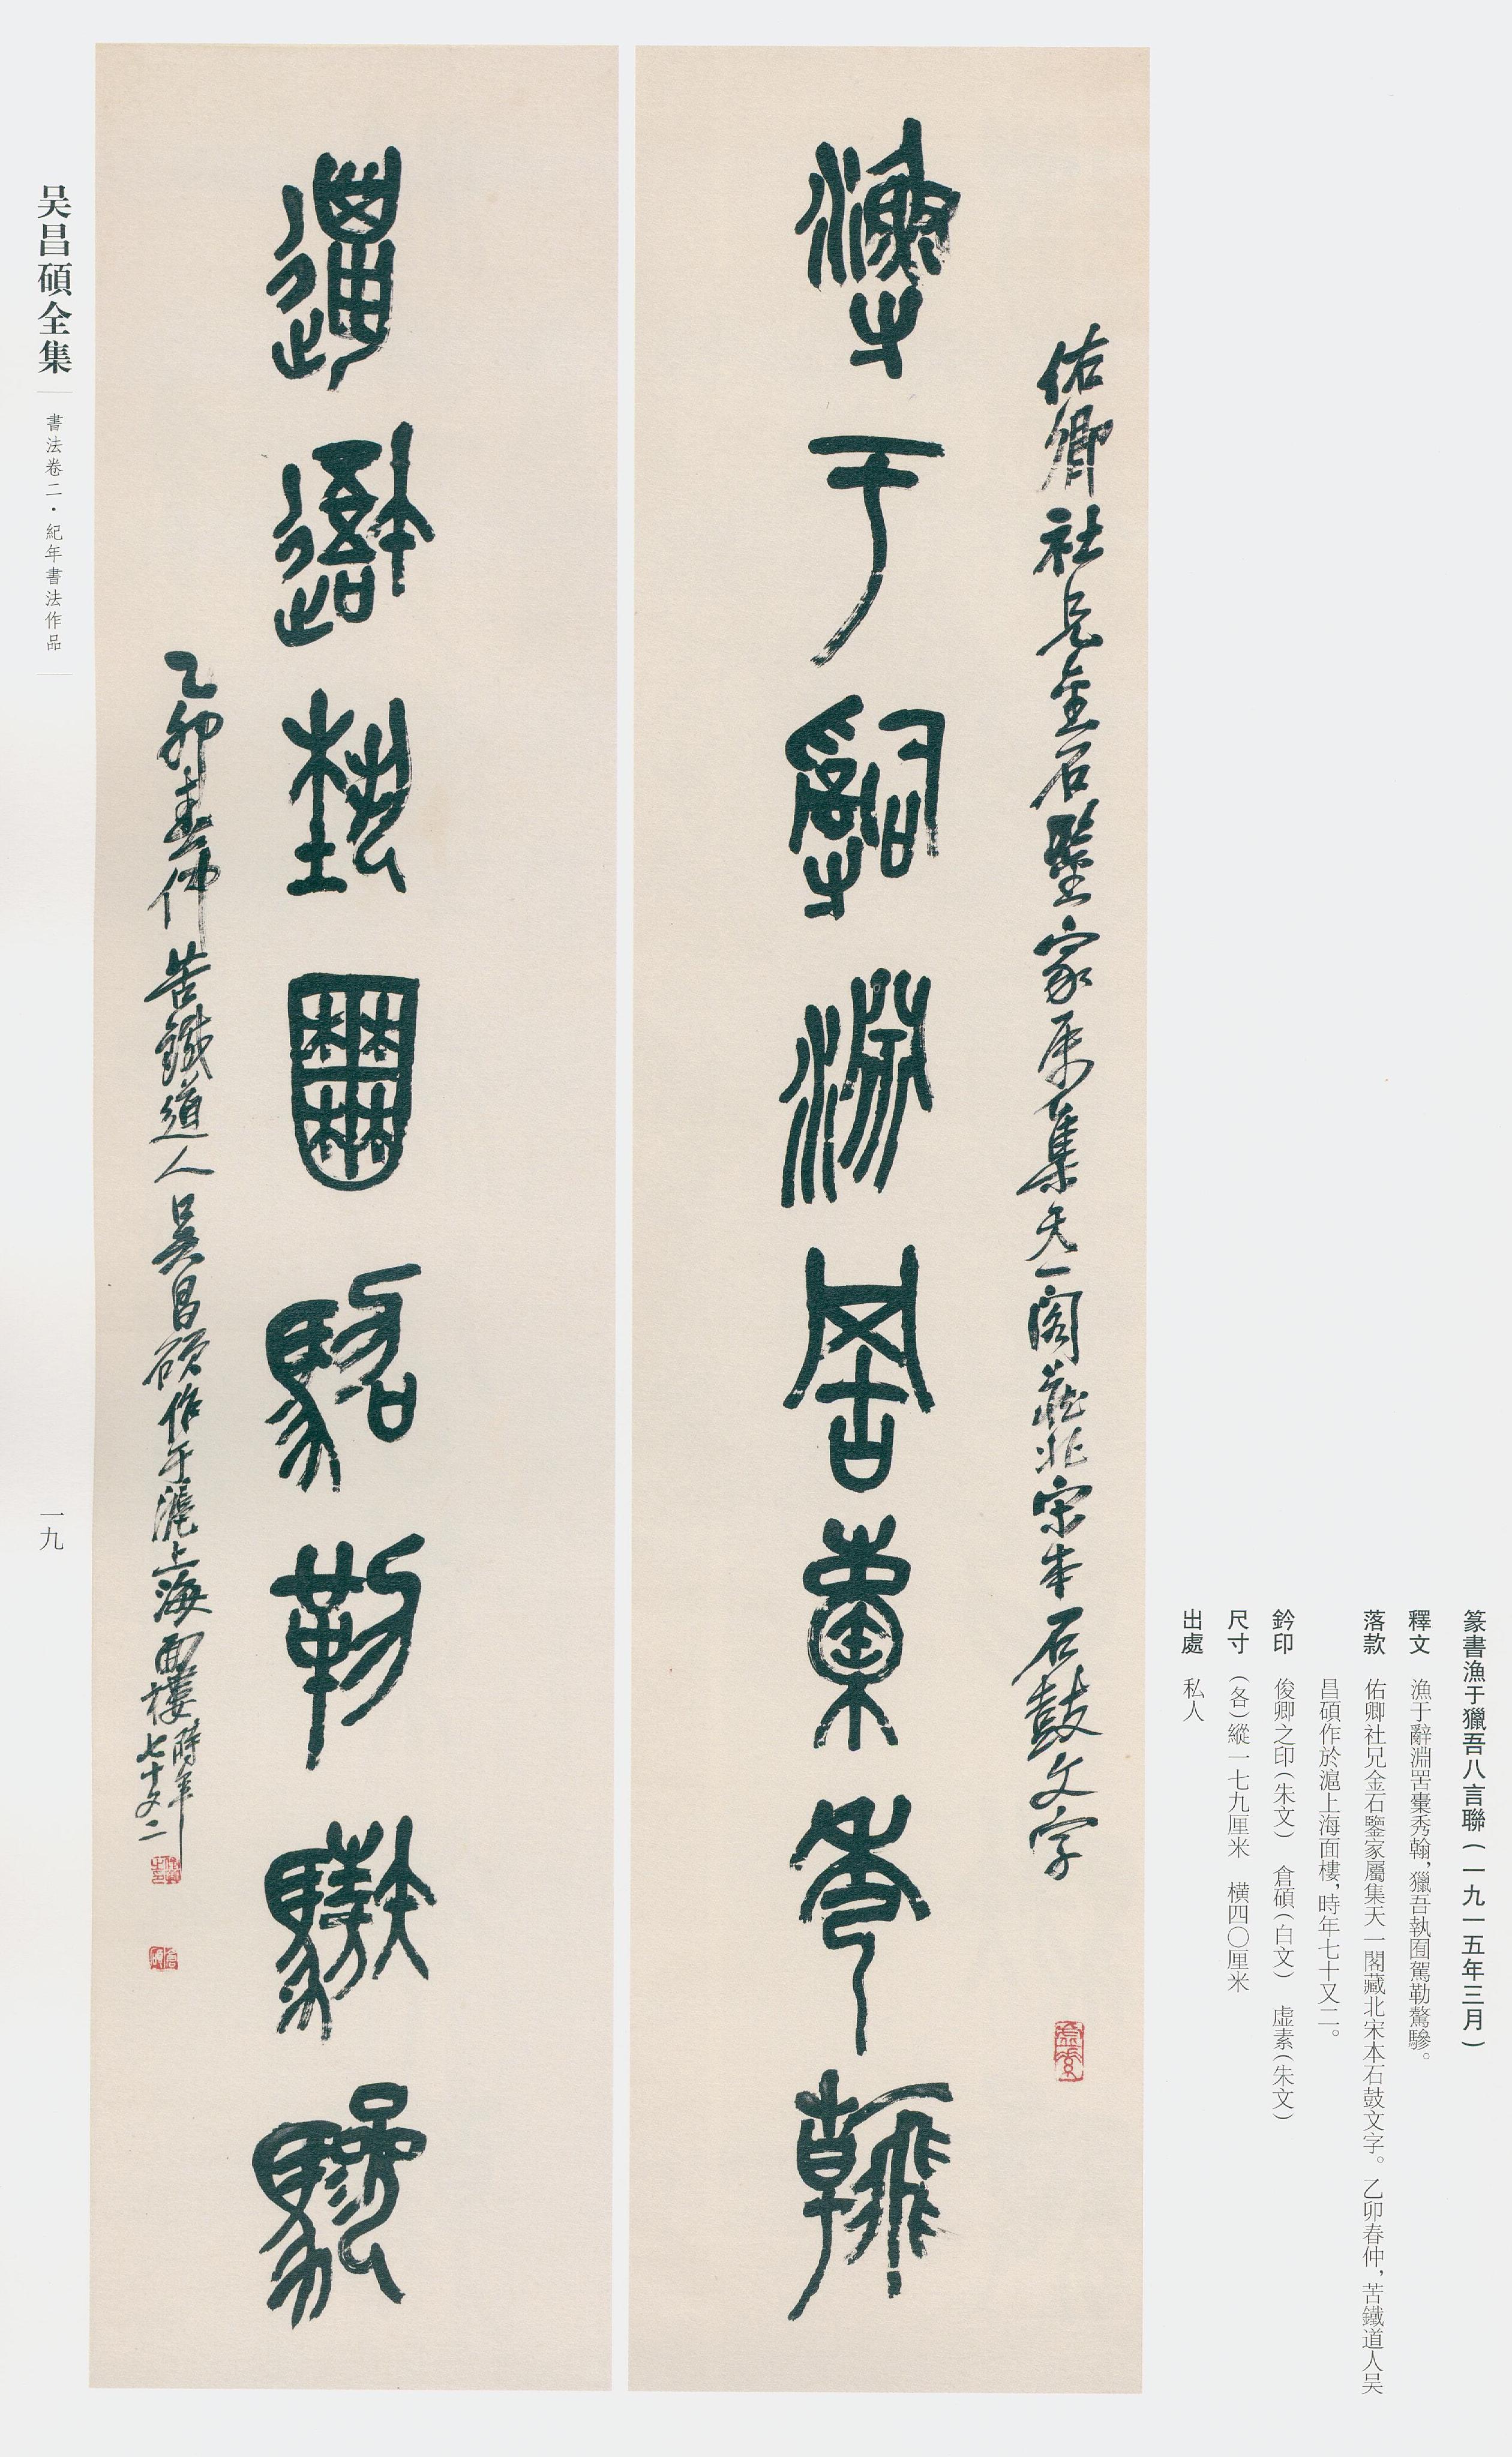 篆書漁于獵吾八言聯(一九一五年三月)
釋文 漁于辭淵罟橐秀翰,獵吾執囿駕勒驁驂。
落款 佑卿社兄金石鑒家屬集天一閣藏北宋本石鼓文字。乙卯春仲,苦鐵道人吴
昌碩作於滬上海面樓,時年七十又二。
鈐印 俊卿之印(朱文) 倉碩(白文) 虛素(朱文)
尺寸 (各)縱一七九厘米 横四〇厘米
出處 私人
佑卿社兄金石鑒家属集天一閣藏北宋本石鼓文字
漁于辭淵罟橐秀翰
獵吾執囿駕勒驁驂
乙卯春仲苦鐵道人吴昌碩作于滬上海面樓時年
七十又二
吴昌碩全集
書法卷二·紀年書法作品
一九